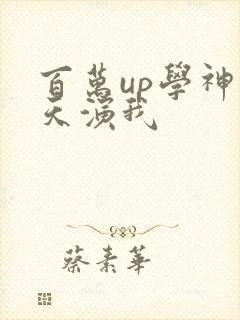 百萬up學神
天演我
蔡素華